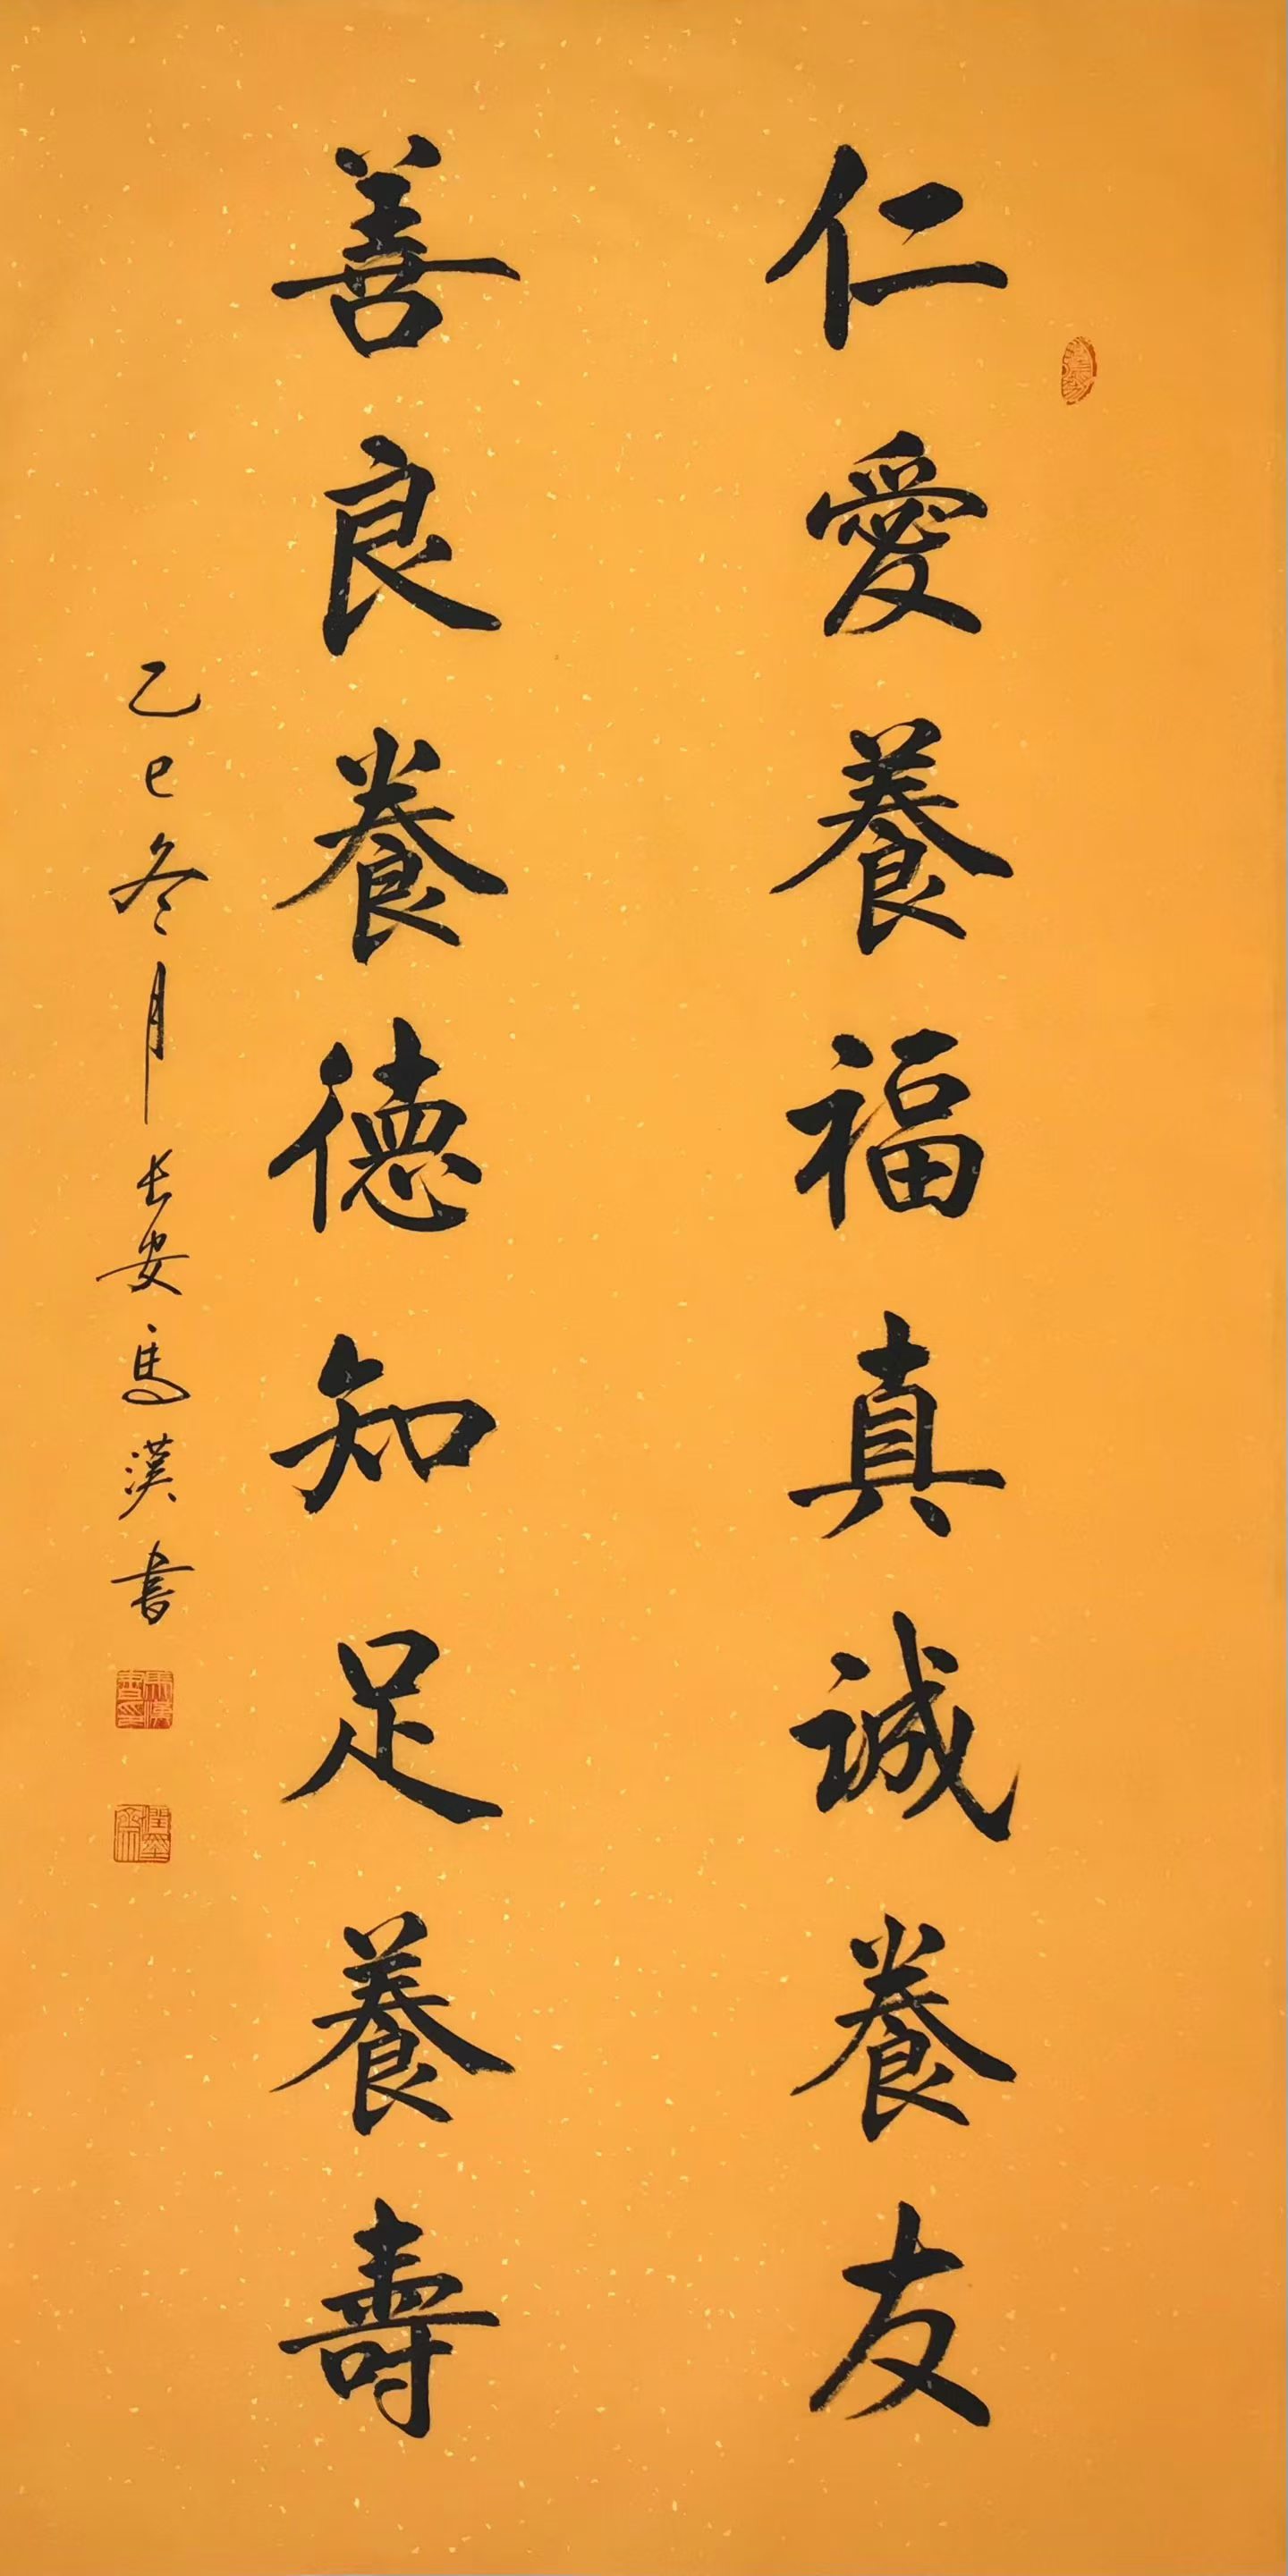 仁愛養福真誠養友
善良養德知足養壽
乙巳冬月長安馬漢書